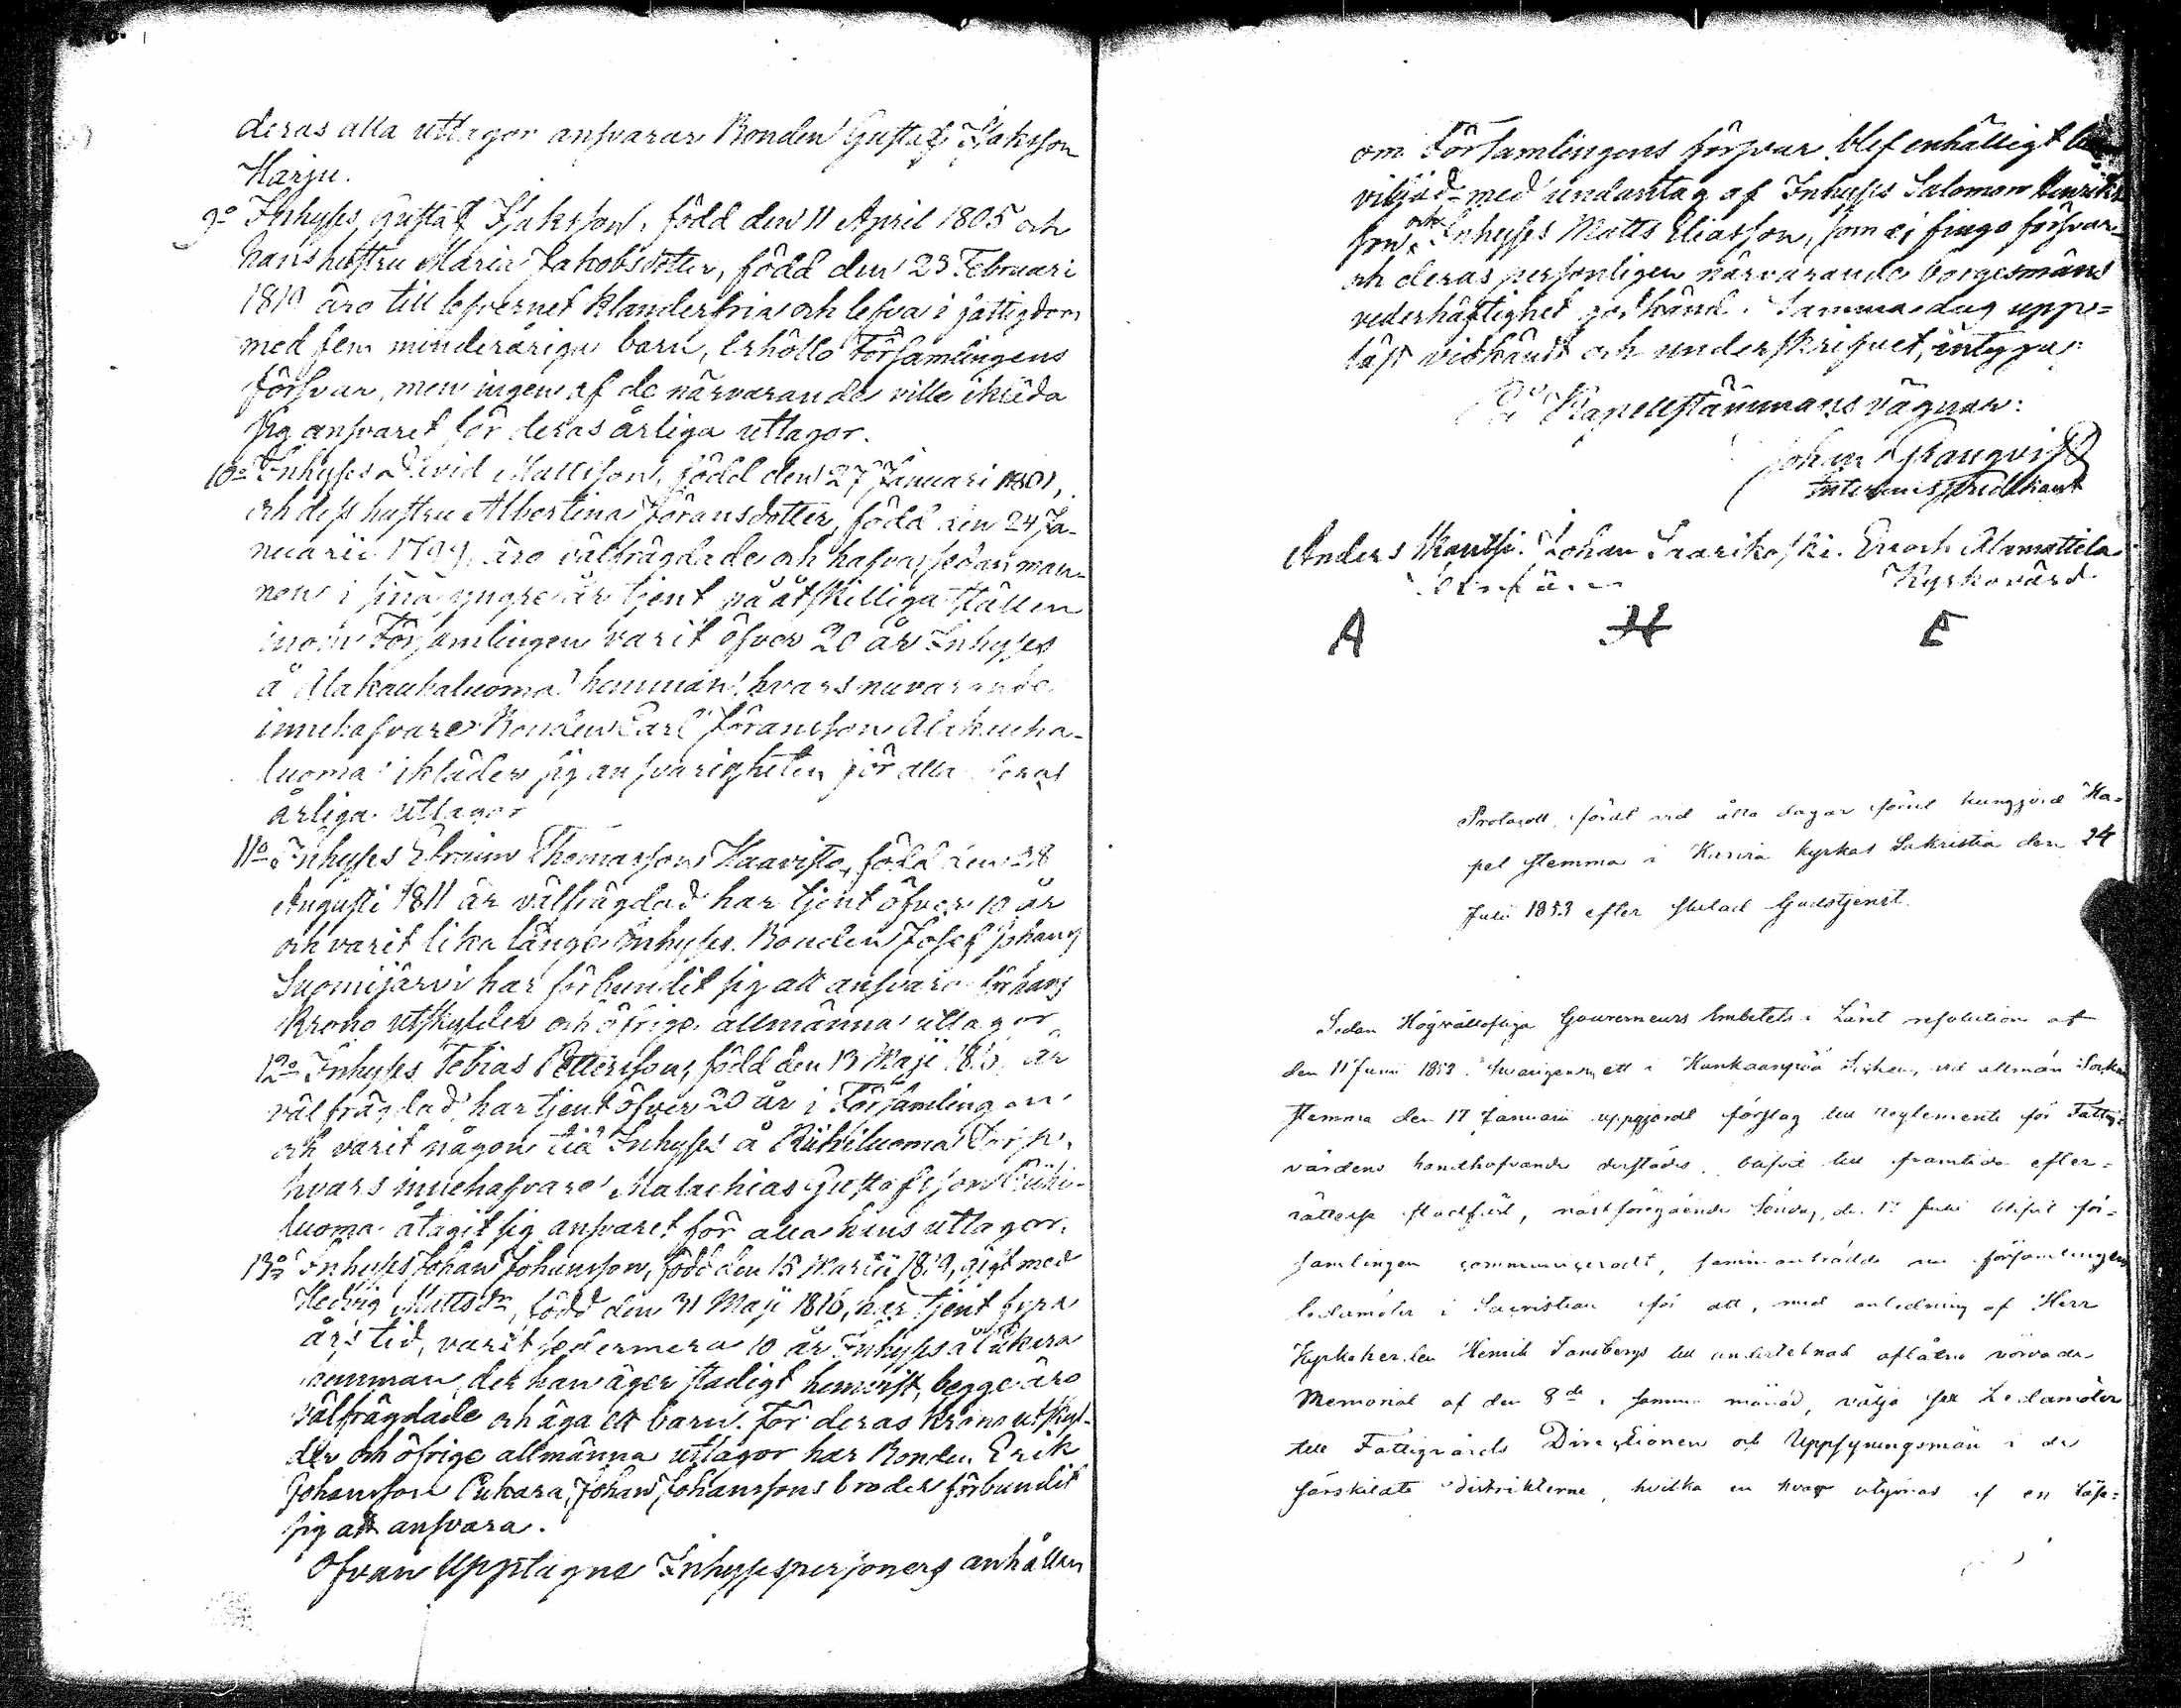 deras alla uttagor ansvarar Bonden Gustaf Isaksson
Harju.
9o Inhyses Gustaf Isaksson, född den 11 April 1805 och
hans hustru Maria Jakobsdotter, född den 23 Februari
1810 äro till lefvernet klanderfria och lefva i fattigdom
med fem minderåriga barn, erhöllo Församlingens
försvar, men ingen af de närvarande ville ikläda
sig ansvaret för deras årliga uttagor.
10o Inhyses David Mattsson, född den 27 Januari 1801,
och dess hustru Albertina Jöransdotter, född den 24 Ja-
nuarii 1799, äro välfrägdade och hafva, sedan man-
nen i sina yngre år tjent på åtskilliga ställen
inom Församlingen varit öfver 20 år Inhyses
å Alakauhaluoma hemman, hvars nuvarande
innehafvare Bonden Carl Jöransson Alakauha-
luoma ikläder sig ansvarigheten för alla deras
årliga uttagor
11o Inhyses Efraim Thomasson Haavisto, född den 28
Augusti 1811 är välfrägdad har tjent öfver 10 år
och varit lika länge Inhyses. Bonden Josef Johans
Suomijärvi har förbundit sig att ansvara för hans
Krono utskylder och öfrige allmänna uttagor
12o Inhyses Tobias Pettersson, född den 13 Maji är
välfrägdad, har tjent öfver 20 år i Församlingen
och varit någon tid Inhyses å Riihiluoma Torp,
hvars innehafvare Malachias Gustafsson Riihi-
luoma åtagit sig ansvaret för alla hans uttagor.
13o Inhyses Johan Johansson, född den 15 Martii 1819, gift med
Hedvig Mattsdr, född den 31 Maji 1816, har tjent fyra
års tid, varit sedermera 10 år Inhyses å Pukara
hemman, der han äger stadigt hemvist, begge äro
välfrägdade och äga ett barn. För deras Krono utskyl-
der och öfrige allmänna uttagor har Bonden Erik
Johansson Pukara, Johan Johanssons broder förbundit
sig att ansvara.
Ofvan Upptagne Inhysespersoners anhållan
om Församlingens försvar blef enhälligt be-
viljad med undantag af Inhyses Salomon Henriks-
son och Inhyses Matts Eliasson, som ej fingo försvar
och deras personligen närvarande borgesmäns
vederhäftighet godkänd. Samma dag uppe-
läst vidkändt och underskrifvet, intyga:
På Kapellstämmans vägnar:
Johan Granqvist
Interimspredikant
Anders Johan Saarikoski. Enoch Alamattila
Kyrkovärd
A H E
Protocoll, fördt vid åtta dagar förut kungjord Ka-
pel stemma i Karvia kyrkas Sakristia den 24
Julii 1853 efter slutad Gudstjenst.
Sedan Högvälloflige Gouverneurs Embetets i Länet resolution af
den 11 Junii 1853, ett i Kankaanpää Socken, vid allmän Sockne
stemma den 17 Januarii uppgjordt förslag till reglemente för Fattig-
vårdens handhafvande derstädes, blifvit till framtida efter-
rättelse stadfäst, nästföregående Söndag, den 17 Julii blifvit för-
samlingen communiceradt, sammanträdde nu församlingens
ledamöter i Sacristian för att, med anledning af Herr
Kyrkoherden Henrik till undertecknad aflåtne vörvade
Memorial af den 8de samma månad, välja sex Ledamöter
till Fattigvårds Directionen och Uppsyningsmän i de
särskilda districkterne, hvilka en hvar utgöras af en Läse-